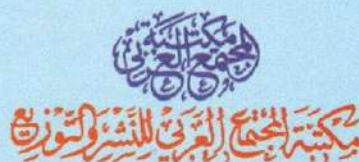 مكتبة المجتمع العربي
مكتبة المجتمع العربي للنشر والتوزيع